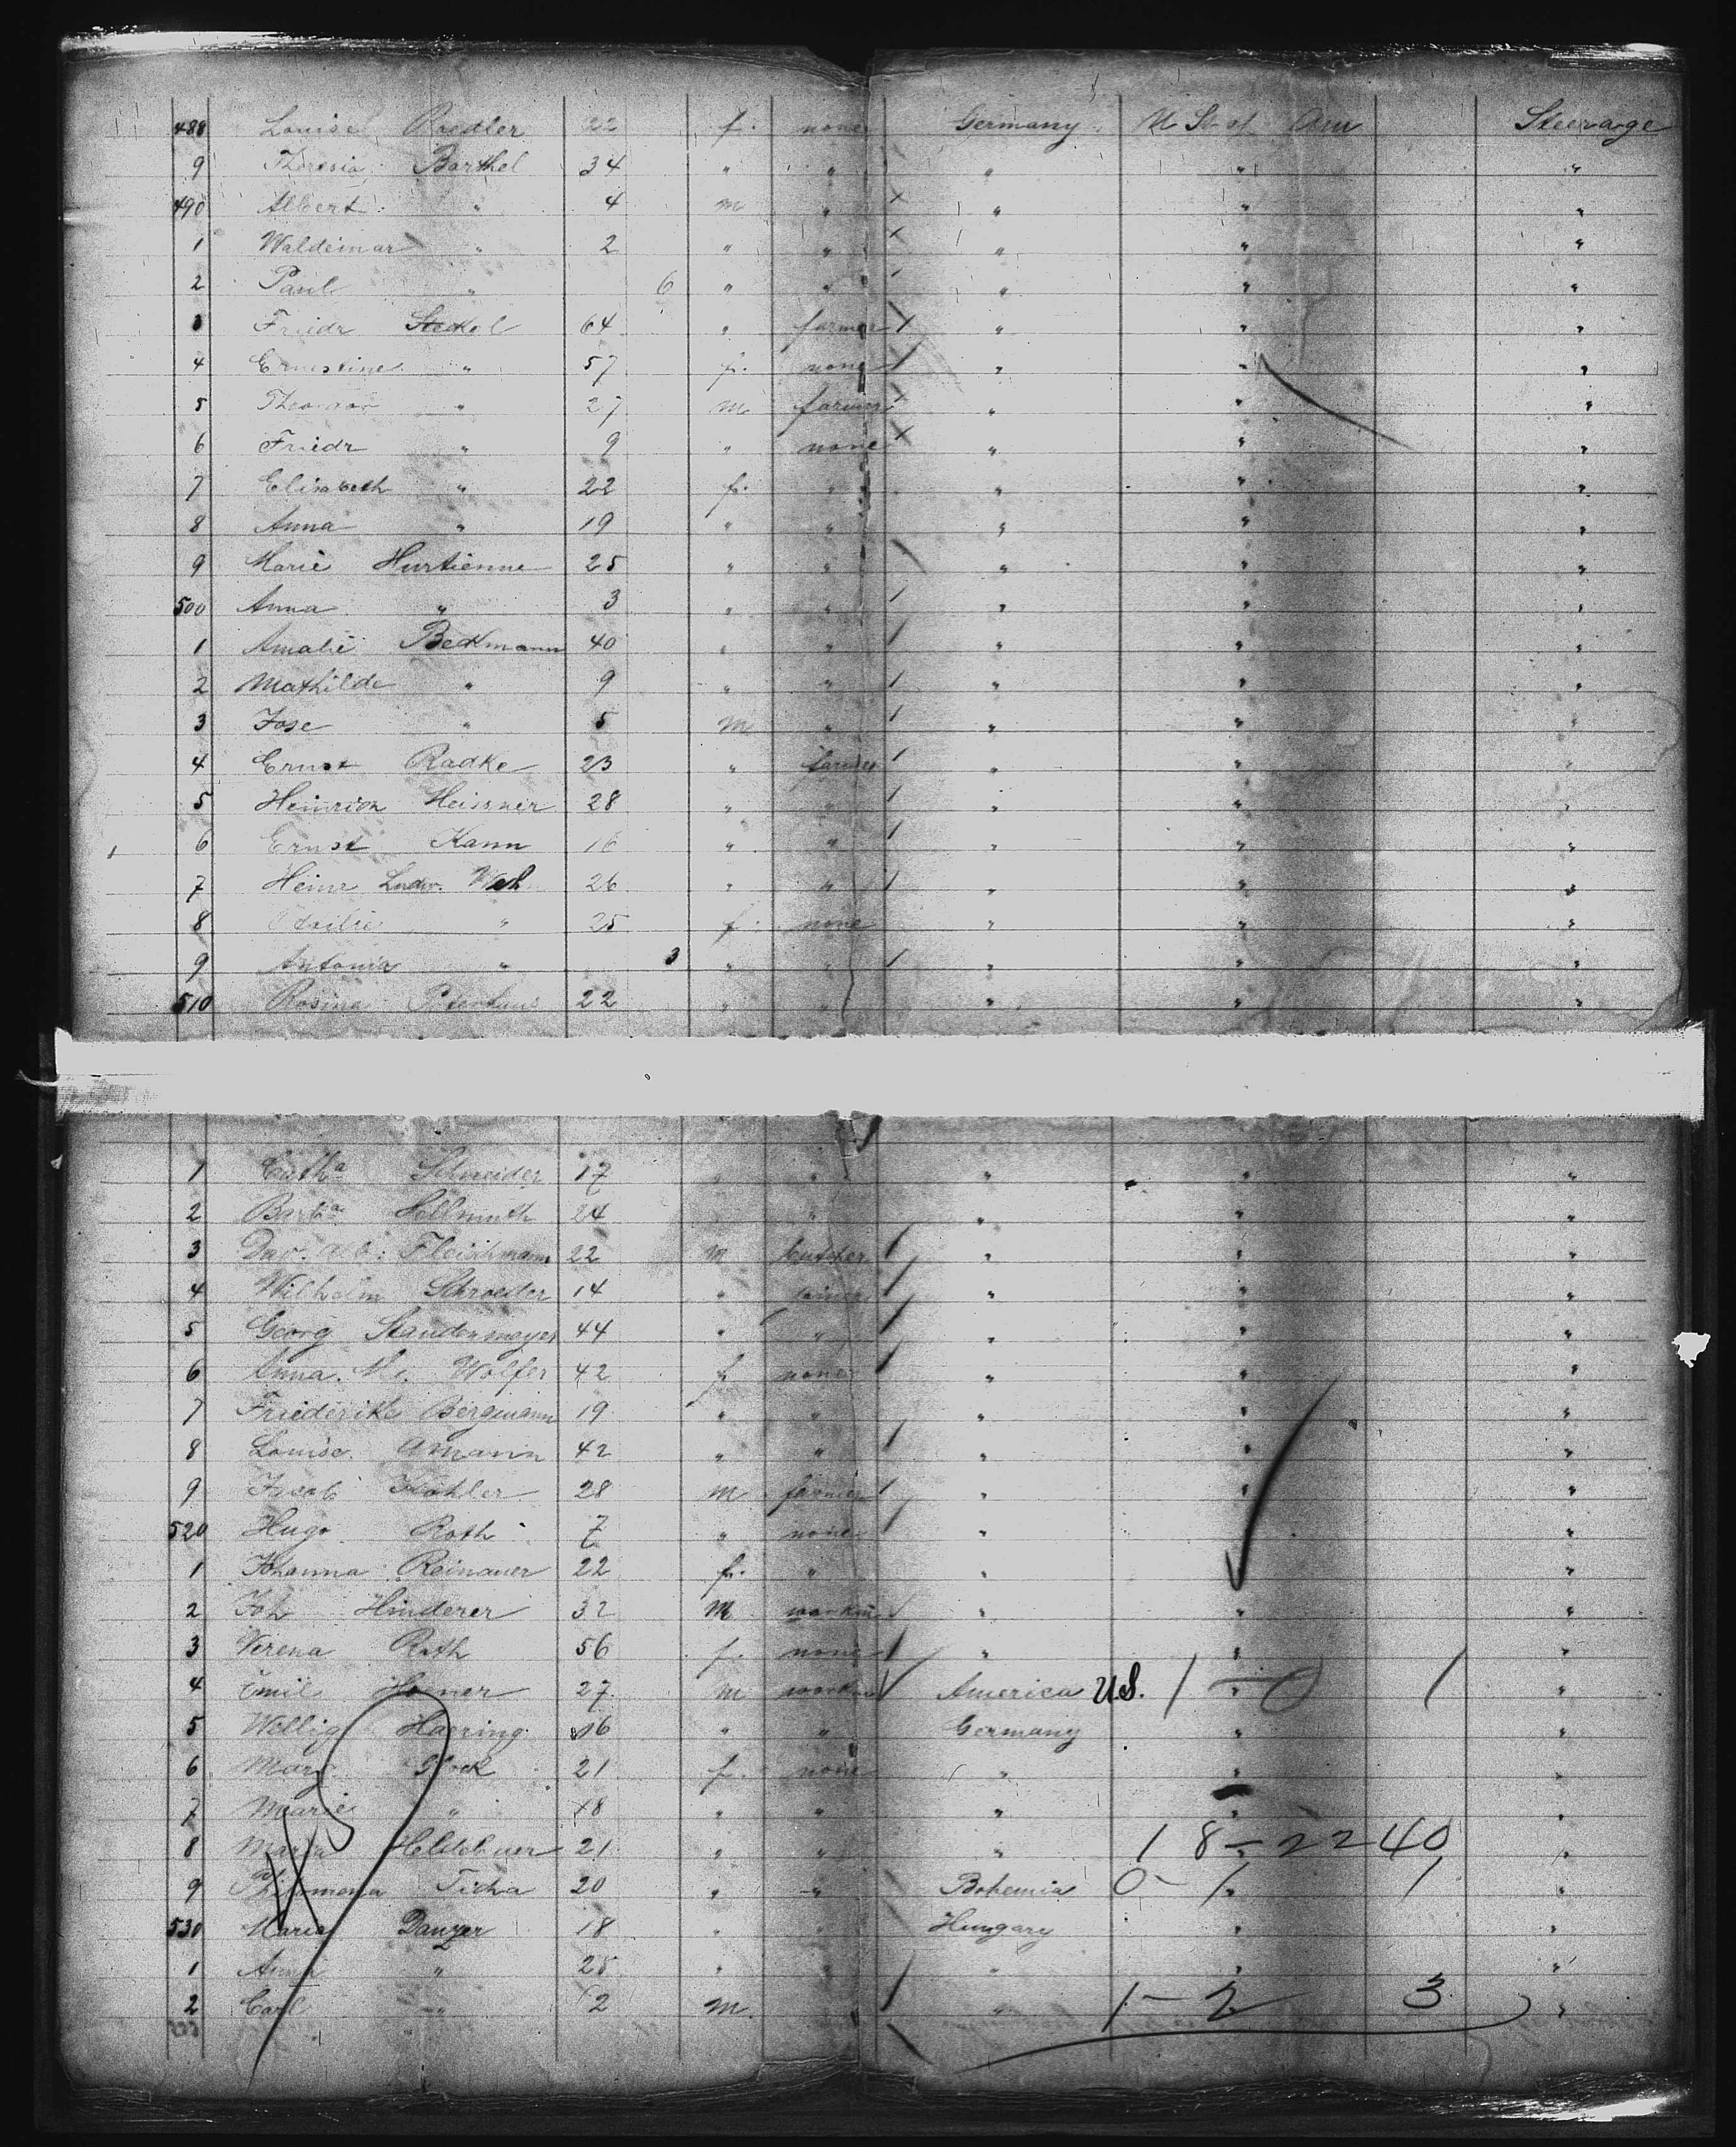 488 Louise Roedler 22 f. none Germany U St of Am Steerage
9 Theresia Barthel 34 " " " " "
490 Albert " 4 m " " " "
1 Waldemar " 2 " " " " "
2 Paul " 6 " " " " "
3 Friedr Steckel 64 " farmer " " "
4 Ernestine " 57 f. none " " "
5 Theodor " 27 m farmer " " "
6 Friedr " 9 " none " " "
7 Elisabeth " 22 f. " " " "
8 Anna " 19 " " " " "
9 Marie Hurtienne 25 " " " " "
500 Anna " 3 " " " " "
1 Amalie Beckmann 40 " " " " "
2 Mathilde " 9 " " " " "
3 Jose " 5 m " " " "
4 Ernst Radke 23 " farmer " " "
5 Heinrich Heissner 28 " " " " "
6 Ernst Kann 16 " " " " "
7 Heinr Ludw. 26 " " " " "
8 " 25 f. none " " "
9 Antonia " 3 " " " " "
510 Rosina 22 " " " " "
1 Cath^a Schneider 17 " " " " "
2 Barb^a Hellmuth 24 " " " "
3 Dav. Fleischmann 22 m butcher " " "
4 Wilhelm Schroeder 14 " " " "
5 Georg Staudenmayer 44 " " " " "
6 Anna M. Wolfer 42 f none " " "
7 Friederike Bergmann 19 " " " " "
8 Louise Amann 42 " " " " "
9 Jacob Köhler 28 m farmer " " "
520 Hugo Roth 7 " none " " "
1 Johanna Reinauer 22 f. " " " "
2 Joh Hinderer 32 m workm " " "
3 Verena Roth 56 f. none " " "
4 Emil 27 m workm America U.S. 1 - 0 1 "
5 Haering 16 " " Germany " "
6 Marg 21 f. none " " "
7 Marie " 18 " " " " "
8 Maria 21 " " " 18 - 22 40 "
9 Philomena Ticha 20 " " Bohemia 0 - 1 1 "
530 Marie Danzer 18 " " Hungary " "
1 Anna " 25 " " " " "
2 Carl " 2 m " 1 - 2 3 "